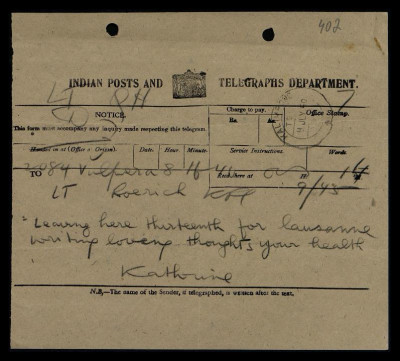 402
INDIAN POSTS AND TELEGRAPHS DEPARTMENT.
LT RH
NOTICE.
This form must accompany any inquiry made respecting this telegram.
Charge to pay.
Rs. As.
Office Stamp.
Handed in at (Office of Origin). Date. Hour. Minute. Service Instructions. Words
TO 84 Vulpera 8 16 4 14
Recd. here at 9/45
LT Roerich
Leaving here thirteenth for lausanne
writing loving thoughts your health
Katherine
N.B,—The name of the Sender, if telegraphed, is written after the text.